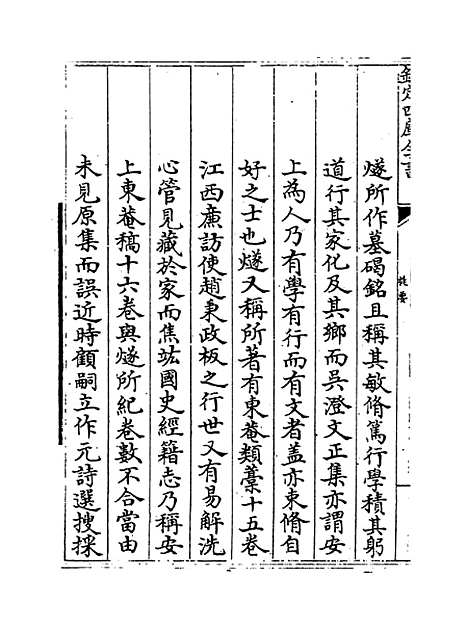 欽定四庫全書
提要
燧所作墓碣銘且稱其敏脩篤行學積其躬
道行其家化及其鄉而吳澄文正集亦謂安
上為人乃有學有行而有文者蓋亦束脩自
好之士也燧又稱所著有東菴類藁十五卷
江西㢘訪使趙秉政板之行世又有易解洗
心管見藏於家而焦竑國史經籍志乃稱安
上東菴稿十六卷與燧所紀卷數不合當由
未見原集而誤近時顧嗣立作元詩選搜採